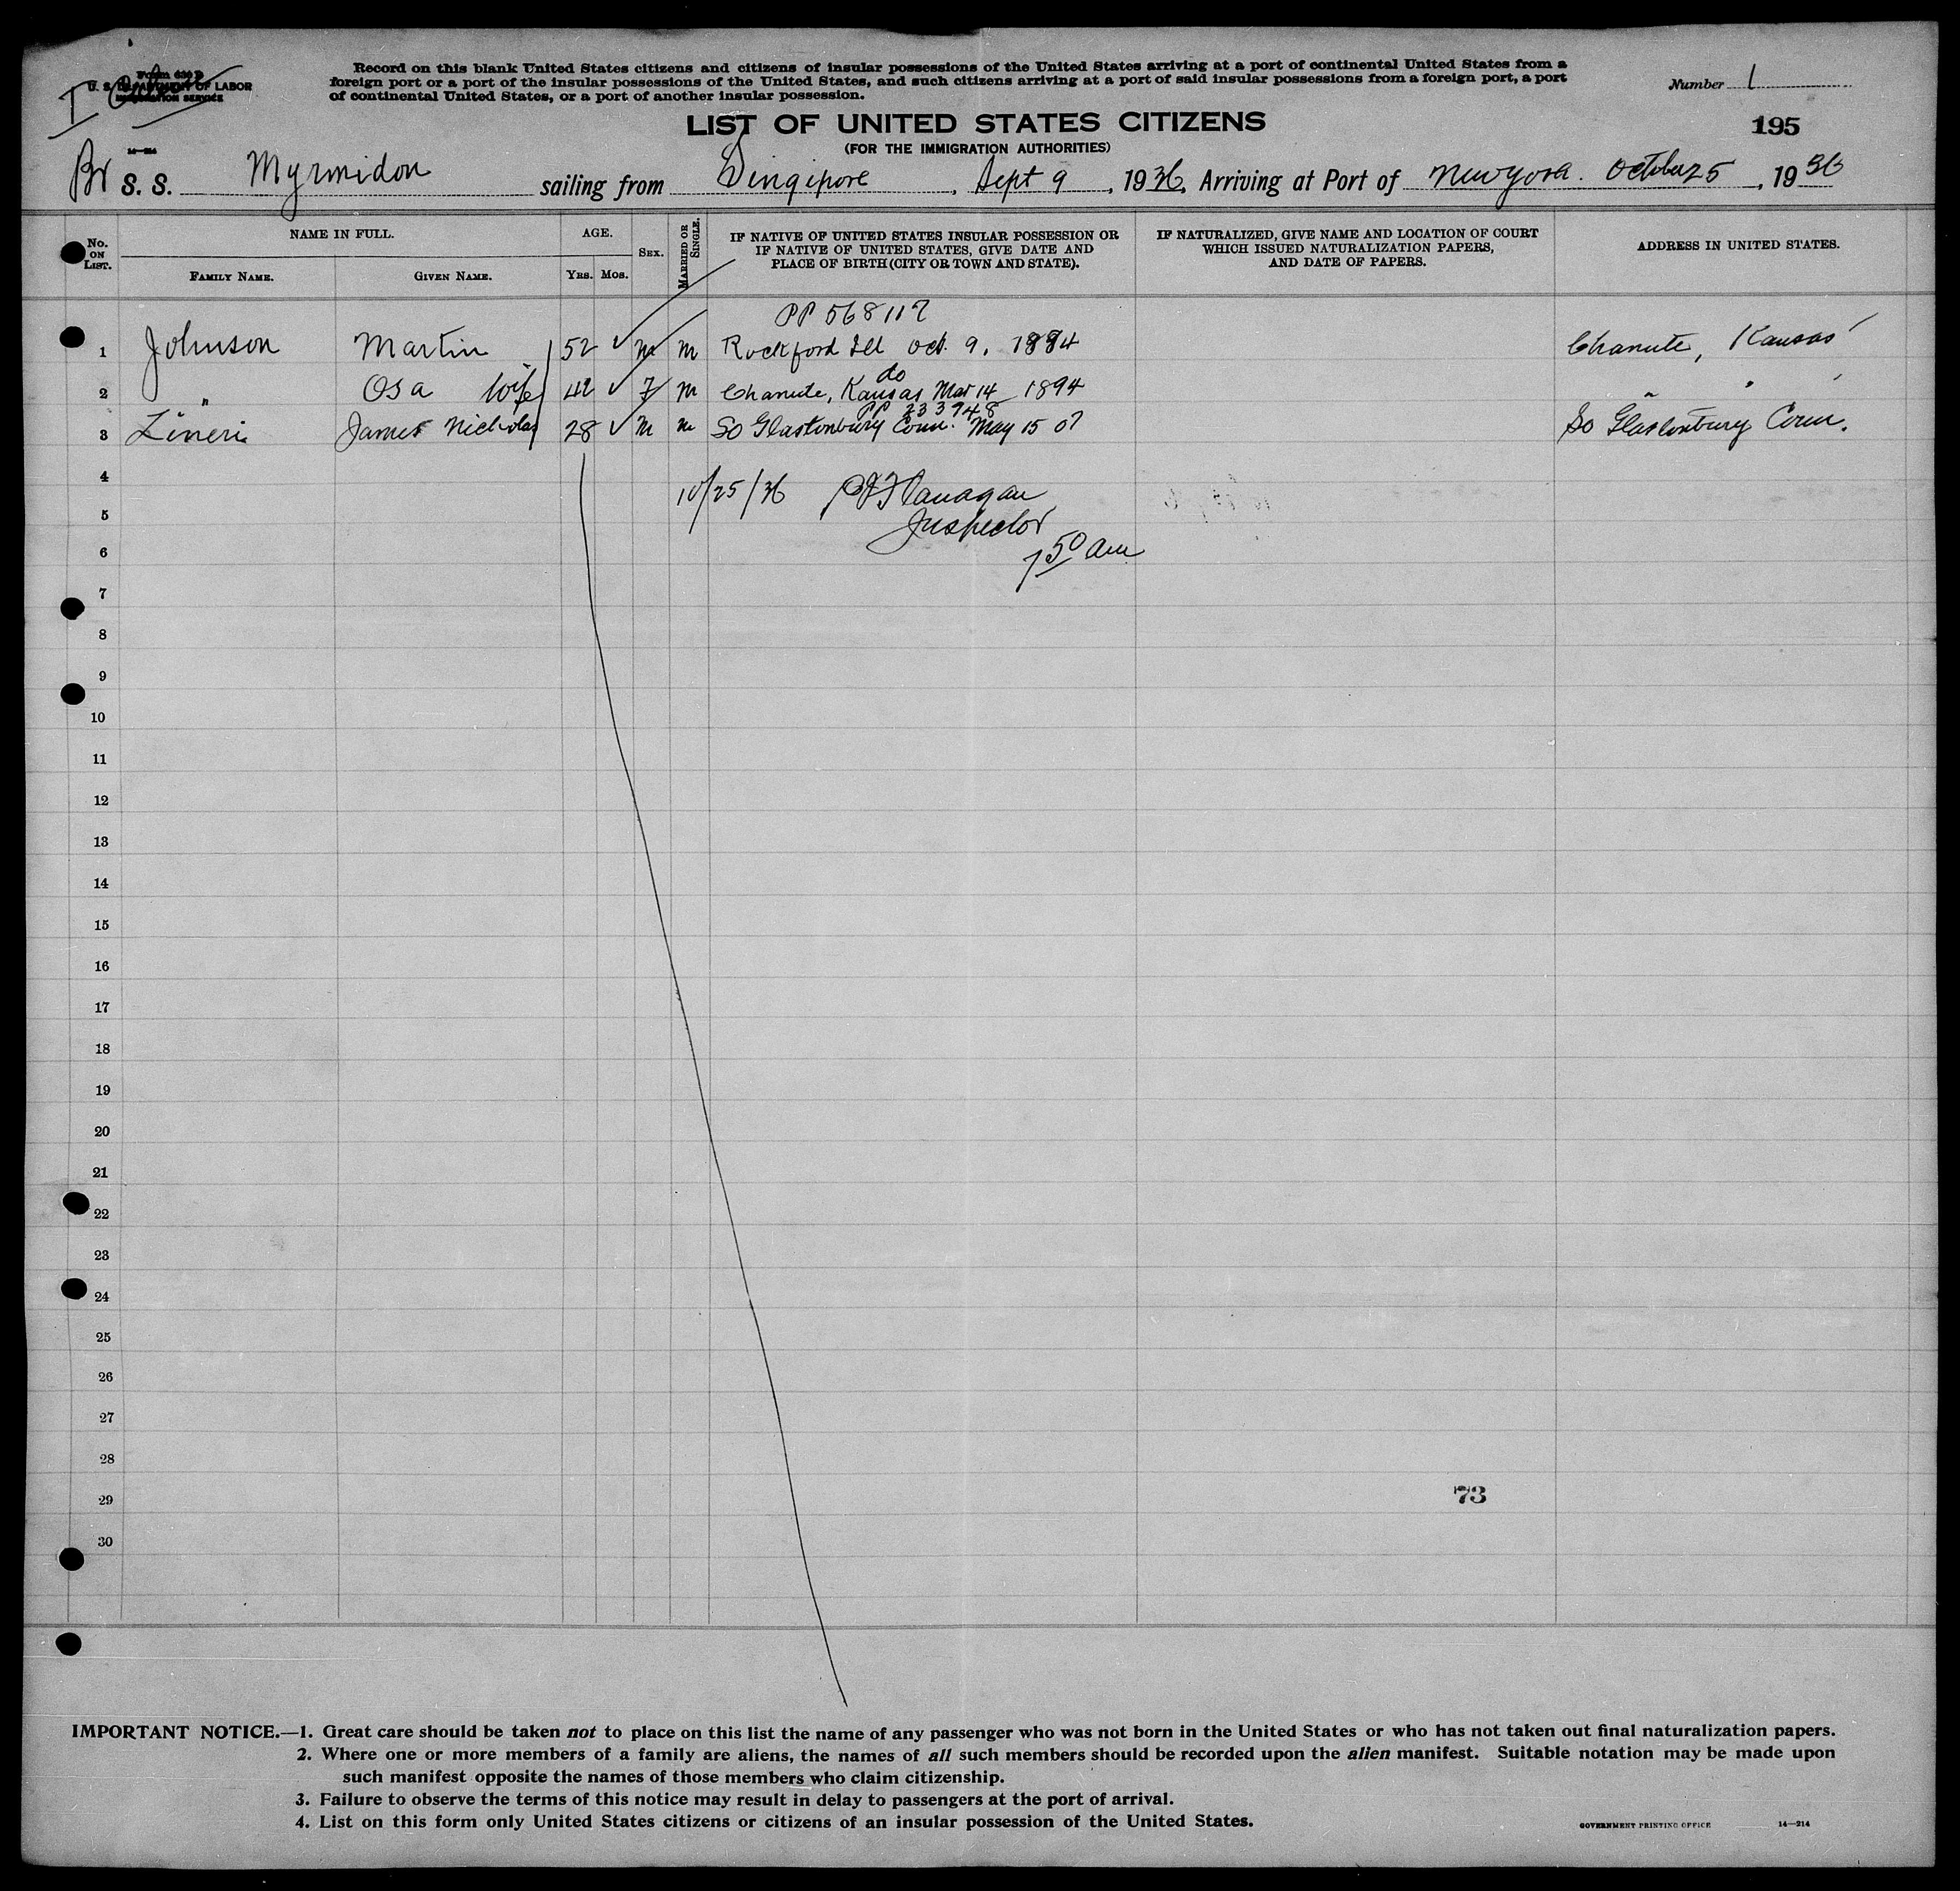 Form 630 D
U. S. DEPARTMENT OF LABOR
IMMIGRATION SERVICE
Record on this blank United States citizens and citizens of insular possessions of the United States arriving at a port of continental United States from a
foreign port or a port of the insular possessions of the United States, and such citizens arriving at a port of said insular possessions from a foreign port, a port
of continental United States, or a port of another insular possession.
Number 1
LIST OF UNITED STATES CITIZENS
195
(FOR THE IMMIGRATION AUTHORITIES)
14—214
Br S. S. Myrmidon sailing from Singipore, Sept 9, 1936, Arriving at Port of New York. October 25, 1936
No. ON LIST.
NAME IN FULL.
FAMILY NAME.
GIVEN NAME.
AGE.
YRS. MOS.
SEX.
MARRIED OR SINGLE.
IF NATIVE OF UNITED STATES INSULAR POSSESSION OR
IF NATIVE OF UNITED STATES, GIVE DATE AND
PLACE OF BIRTH (CITY OR TOWN AND STATE).
IF NATURALIZED, GIVE NAME AND LOCATION OF COURT
WHICH ISSUED NATURALIZATION PAPERS,
AND DATE OF PAPERS.
ADDRESS IN UNITED STATES.
PP 568117
1 Johnson Martin 52 m m Rockford Ill Oct. 9, 1884 Chanute, Kansas
do
2 " Osa wife 42 F m Chanute, Kansas Mar 14 1894 "
PP 233948
3 Lineri James Nicholas 28 m m So Glastonbury Conn. May 15 07 So Glastonbury Conn.
4
10/25/36 PJ Flanagan
5
Inspector
6
7 50 am
7
8
9
10
11
12
13
14
15
16
17
18
19
20
21
22
23
24
25
26
27
28
29
73
30
IMPORTANT NOTICE.—1. Great care should be taken not to place on this list the name of any passenger who was not born in the United States or who has not taken out final naturalization papers.
2. Where one or more members of a family are aliens, the names of all such members should be recorded upon the alien manifest. Suitable notation may be made upon
such manifest opposite the names of those members who claim citizenship.
3. Failure to observe the terms of this notice may result in delay to passengers at the port of arrival.
4. List on this form only United States citizens or citizens of an insular possession of the United States.
GOVERNMENT PRINTING OFFICE 14—214